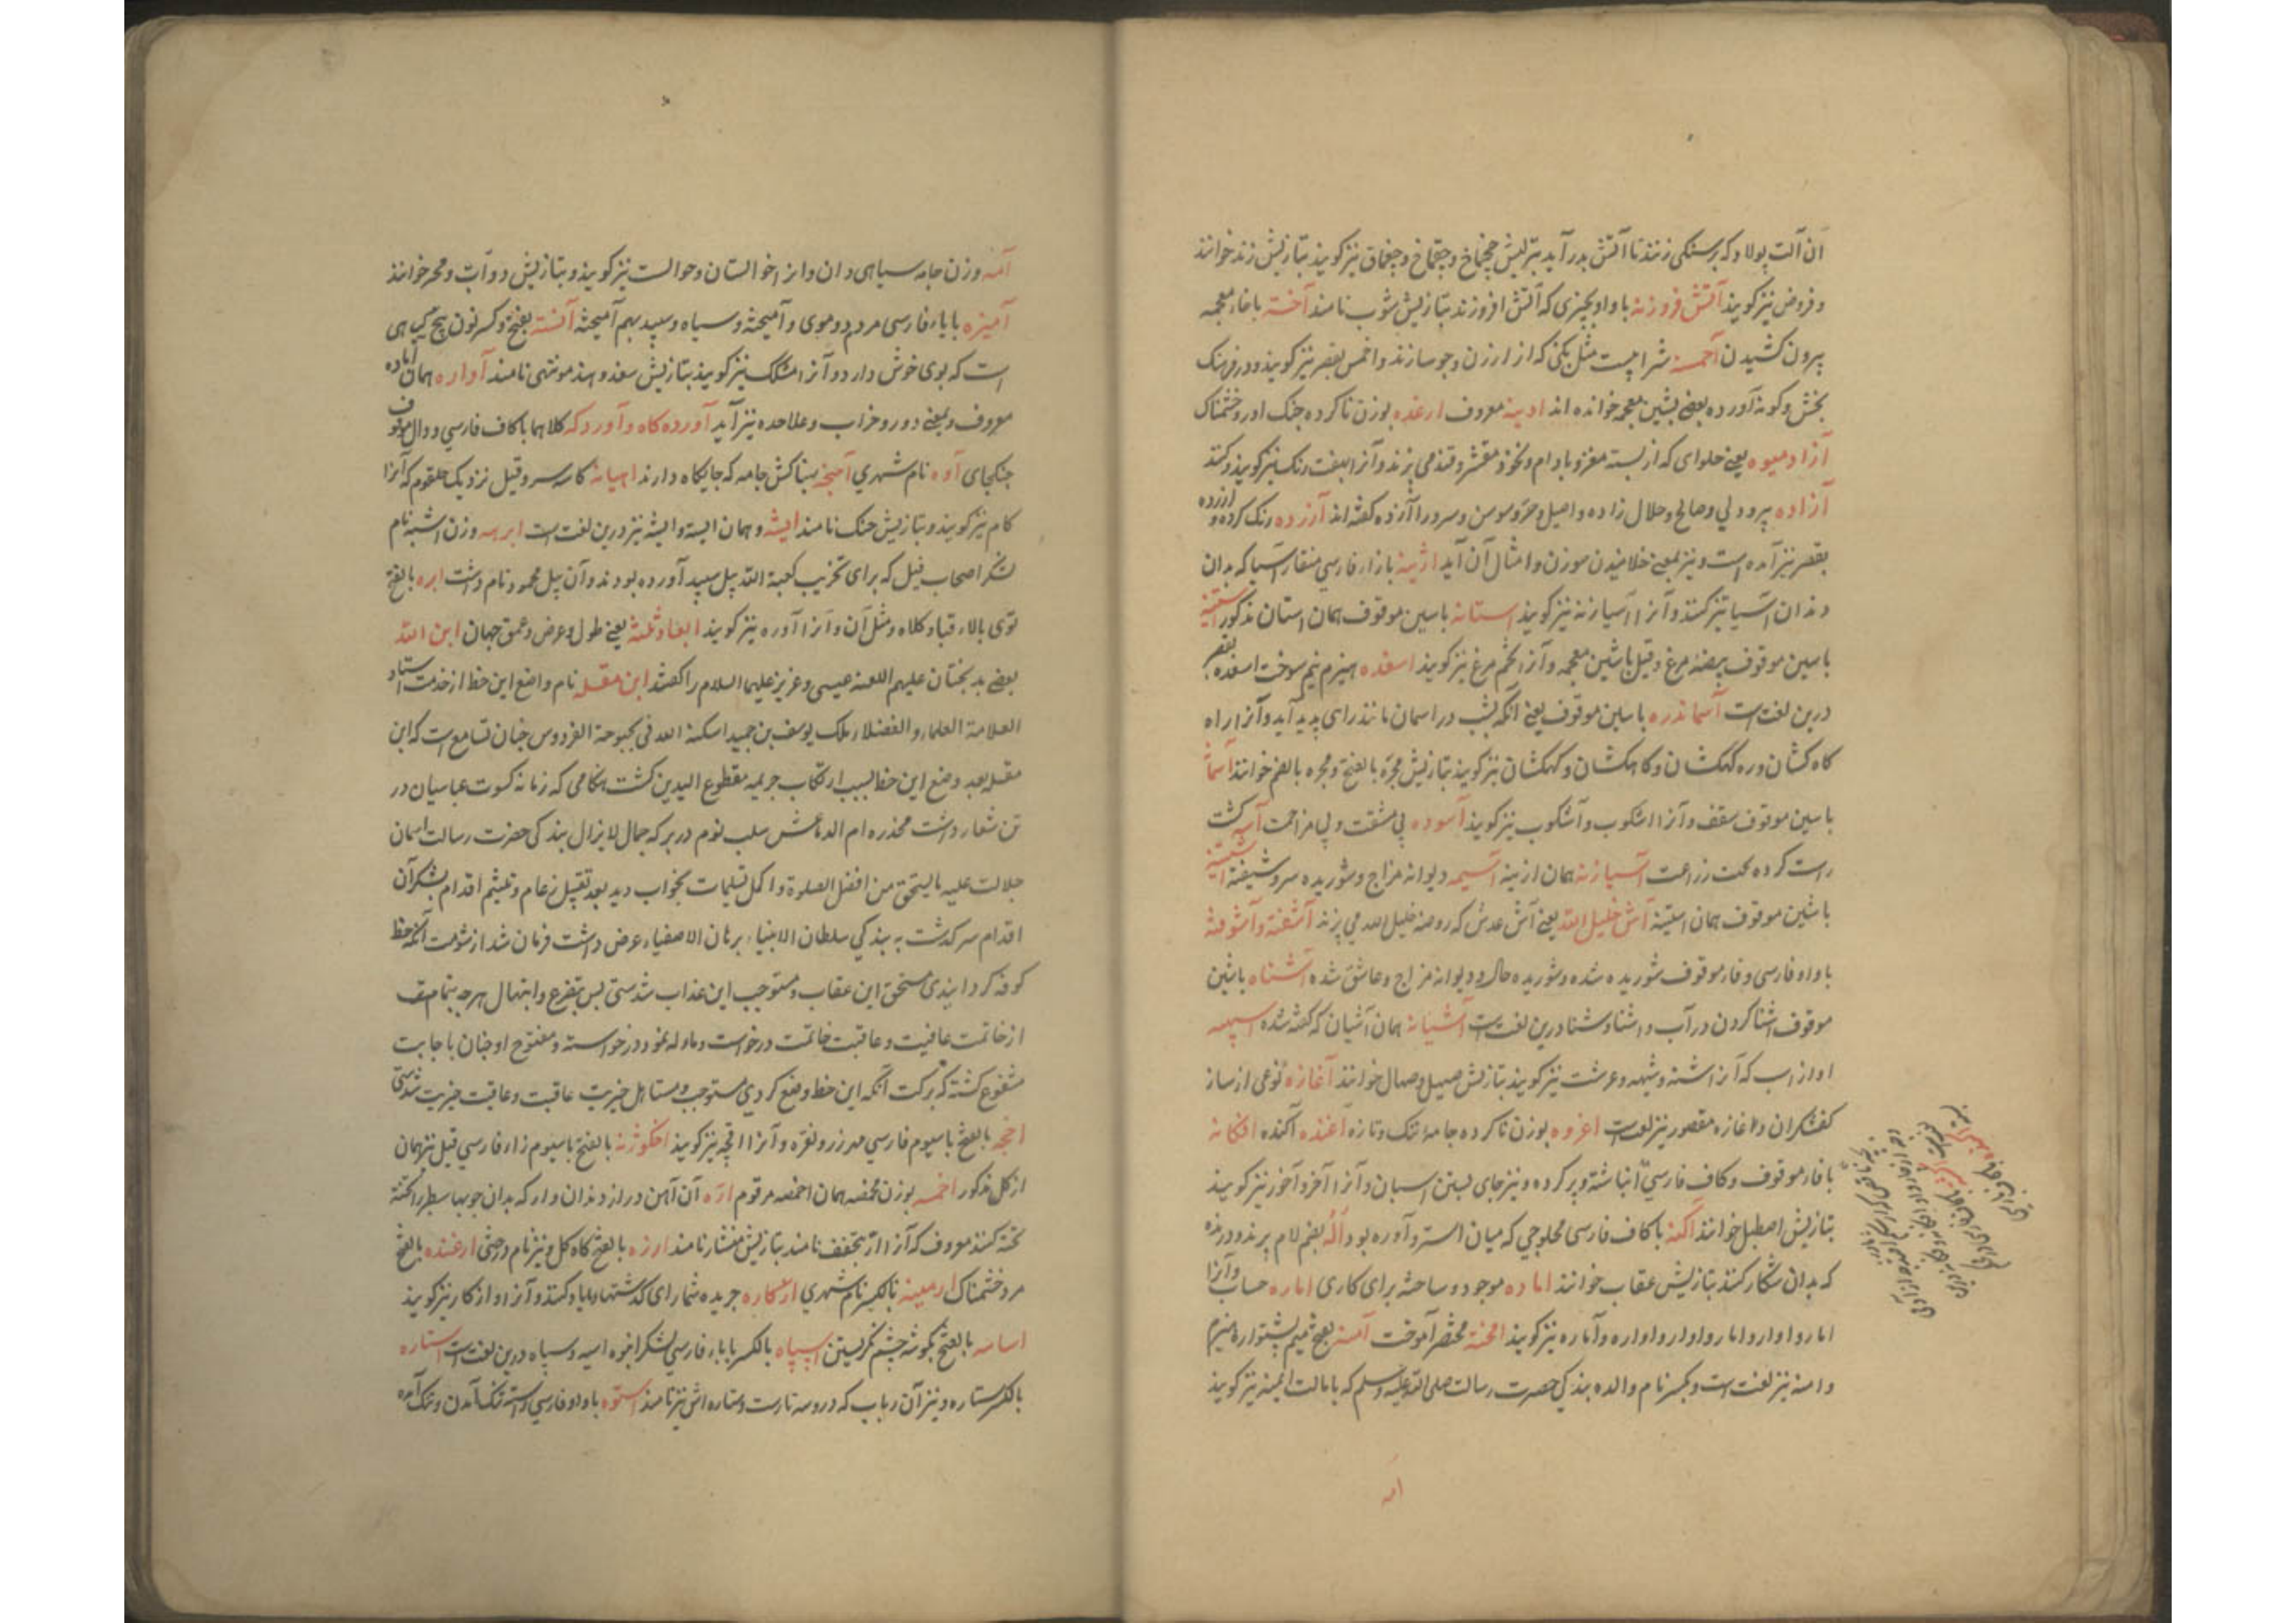 آن آلت پولاد که بر سنکی زنند تا آتش بدر آید بترکیش چخماخ و چقماخ و چغماق نیز کویند بتازیش زند خوانند
و فروض نیز کویند آتش فروزنه با واو چیزی که آتش افروزند بتازیش شوب نامند آخته با خاء معجمه
بیرون کشیدن آخمسه شرابیست مثل بکنی که از ارزن و جو سازند و اخمس بقصر نیز کویند و در فرهنک
بخش و کونه آورده بعضی بشین معجمه خوانده اند ادینه معروف ارغده بوزن ناکرده جنک اور و خشمناک
آزادمیوه یعنی حلوای که از بسته مغز و بادام و نخود مقشر و قند می پزند و آنرا بلغت رنک نیز کویند
آزاده پیر و ولی و صالح و حلال زاده و اصیل و حر و سوسن و سرو را آزاده کفته اند آزرده رنک کرده و
بقصر نیز آمده است و نیز بمعنی خلانیدن سوزن و امثال آن آید اژینه با زاء فارسی منقار آسیا که بدان
دندان آسیا تیز کنند و آنرا آسیازنه نیز کویند استانه با سین موقوف همان استان مذکور
با سین موقوف بیضه مرغ و قیل با شین معجمه و آنرا تخم مرغ نیز کویند اسغده هیزم نیم سوخت اسغده بقصر
درین لغت است آسماندره با سین موقوف یعنی آنکه بشب در اسمان مانند راهی پدید آید و آنرا راه
کاه کشان و ره کهکشان و کاهکشان و کهکشان نیز کویند بتازیش مجرّه بالفتح و مجره بالضم خوانند
با سین موقوف سقف و آنرا اشکوب و آشکوب نیز کویند آسوده بی مشقت و بی مزاحمت کشت
راست کرده تحت زراعت آسیازنه همان ازینه آسیمه دیوانه مزاج و شوریده سر و شیفته
با شین موقوف همان استینه آش خلیل الله یعنی آش عدس که روضه خلیل الله می پزند آشفته و آشوفته
با واو فارسی و فاء موقوف شوریده شده و شوریده حال و دیوانه مزاج و عاشق شده آشناه باشین
موقوف اشنا کردن در آب و اشنا و شنا درین لغت است آشیانه همان آشیان که کفته شده
اواز اسب که آنرا شنه و شیهه و عرشت نیز کویند بتازیش صهیل و صهال خوانند آغازه نوعی از ساز
کفشکران و اغازه مقصور نیز لغت است اغروه بوزن ناکرده جامه تنک و تازه آغنده آکنده افکانه
با فاء موقوف و کاف فارسی انباشته و پر کرده و نیز جای بستن اسبان و آنرا آخر و آخور نیز کویند
بتازیش اصطبل خوانند اکنه با کاف فارسی محلوجی که میان استر و آوره بود آله بضم لام پرنده درنده
که بدان شکار کنند بتازیش عقاب خوانند اماده موجود و ساخته برای کاری اماره حساب و آنرا
امار و اوار و امار و اوار و اواره و آماره نیز کویند آمخته مختصر آموخت آمنه بفتح میم پشتواره هیزم
و امنه نیز لغت است و بکسر نام والده بندکی حضرت رسالت صلی الله علیه و سلم که با مالت ایمنه نیز کویند
امه
آمه وزن جامه سیاهی دان و انرا خوالستان و خوالست نیز کویند و بتازیش دوات و محبر خوانند
آمیزه با یاء فارسی مردم دوموی و آمیخته و سیاه و سپید بهم آمیخته آنسته بفتح و کسر نون بیخ کیاهی
است که بوی خوش دارد و آنرا مشک نیز کویند بتازیش سعد و هند موتهی نامند آواره همان آماده
معروف و بمعنی دور و خراب و علاحده نیز آید آوردگاه و آوردکه کلاهما با کاف فارسی و دال موقوف
جنکجای آوه نام شهری آهنجه بهناکش جامه که جایکاه دارند اهیانه کاسه سر و قیل نزدیک حلقوم که آنرا
کام نیز کویند و بتازیش حنک نامند ایشه و همان ایسته و ایشه نیز درین لغت است ابرهه وزن اشبه نام
لشکر اصحاب فیل که برای تخریب کعبة الله پیل سپید آورده بودند و آن پیل محمود نام داشت ابره بالفتح
توی بالاء قبا و کلاه و مثل آن و آنرا آوره نیز کویند ابعاد ثلثه یعنی طول و عرض و عمق جهان ابن الله
بعضی بدبختان علیهم اللعنه عیسی و عزیر علیهما السلام را کفتند ابن مقله نام واضع این خط از خدمت استاد
العلامة العلماء و الفضلاء ملک یوسف بن حمید اسکنه الله فی بحبوحة الفردوس چنان تسامع است که ابن
مقله بعد وضع این خط بسبب ارتکاب جریمه مقطوع الیدین کشت هنکامی که زمانه کسوت عباسیان در
تن شعار داشت مخدره ام الدماغش سلب نوم در بر که جمال لایزال بندکی حضرت رسالت اسمان
جلالت علیه ما یستحق من افضل الصلوة و اکمل تسلیمات بخواب دید بعد تقبیل رغام و تلثیم اقدام بشکر آن
اقدام سرکذشت به بندکی سلطان الانبیاء برهان الاصفیاء عرض داشت فرمان شد از شومت آنکه خط
کوفه کردانیدی مستحق این عقاب و مستوجب این عذاب شدستی بس بتضرع و ابتهال هرچه تمام تر
از خاتمت عافیت و عاقبت خاتمت درخواست و مأوله نمود درخواسته و مفتوح او چنان باجابت
مشفوع کشته که ببرکت آنکه این خط وضع کردی مستوجب و مستاهل خیریت عاقبت و عاقبت خیریت شدستی
اخچه بالفتح با سیوم فارسی مهر زر و نقره و آنرا اقچه نیز کویند اخکوژنه بالفتح با سیوم زاء فارسی قیل نیز همان
از کل مذکور اخمسه بوزن مخمصه همان اخمصه مرقوم اره آن آهن دراز دندان دار که بدان چوبها سطبر را
تخته کنند معروف که آنرا ارّ بتخفف نامند بتازیش منشار نامند ارزه بالفتح کاه کل و نیز نام درختی ارغنده بالفتح
مرد خشمناک ارمینه بالکسر نام شهری جریده شمارای کذشتها و یاد کنند و آنرا دوازکار نیز کویند
اسامه بالفتح بکوشه چشم نکریستن اسپاه بالکسر با باء فارسی لشکر انبوه اسپه و سپاه درین لغت است استاره
بالکسر ستاره و نیز آن رباب که درو سه تارست و ستاره اش نیز نامند استوه با واو فارسی